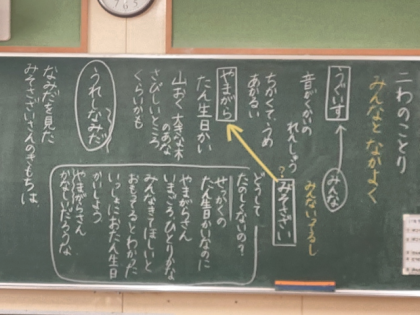 二わのことり
みんなと なかよく
うぐいす
みんな
みないうるし
音がくかいの
れんしゅう
ちかくて、うめ
あかるい
?
みそさざい
やまがら
たん生日かい
山おく 大きな木
のあな
さびしいところ
くらいかも
どうして
たのしくないの?
せっかくの
たん生日かいなのに
やまがらさん
いまごろ、ひとりかな
みんなきてほしいと
おもってるとわかった
いっしょにおたん生日
かいしよう
やまがらさん
かなしいだろうな
うれしなみだ
なみだを見た
みそさざいさんのきもちは、